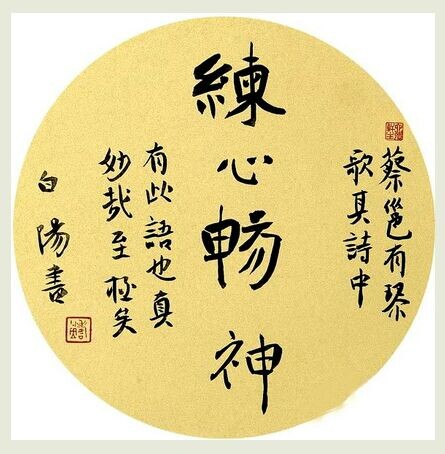 蔡邕有琴
歌其詩中
練心暢神
有此語也真
妙哉至極矣
白陽書